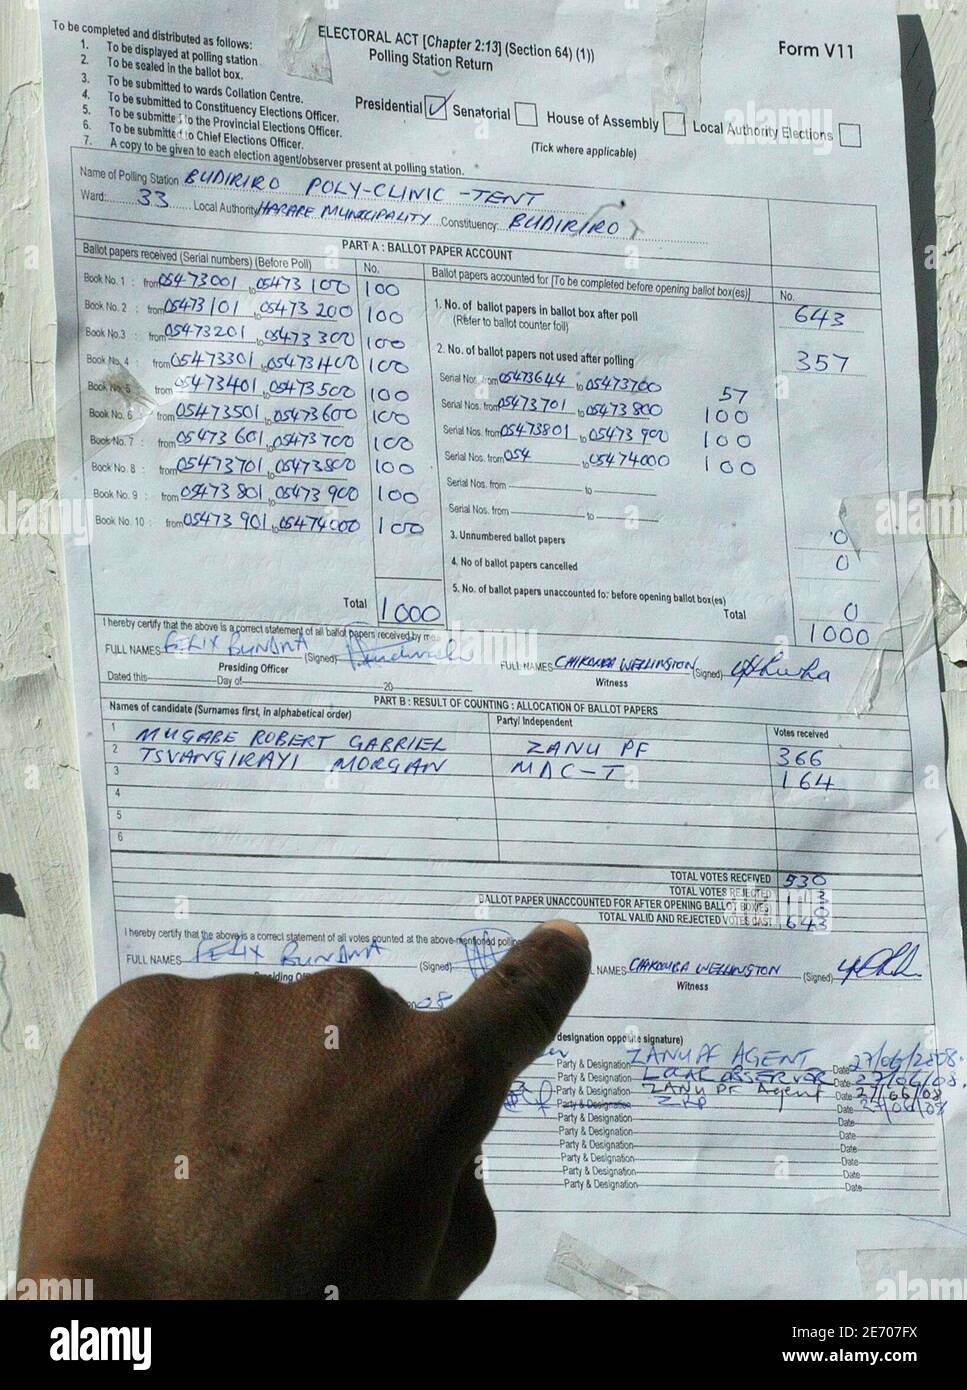 To be completed and distributed as follows:
1. To be displayed at polling station
2. To be sealed in the ballot box.
3. To be submitted to wards Collation Centre.
4. To be submitted to Constituency Elections Officer.
5. To be submitted to the Provincial Elections Officer.
6. To be submitted to Chief Elections Officer.
7. A copy to be given to each election agent/observer present at polling station.
ELECTORAL ACT [Chapter 2:13] (Section 64) (1))
Polling Station Return
Form V11
Presidential ✓ Senatorial House of Assembly Local Authority Elections
(Tick where applicable)
Name of Polling Station BUDIRIRO POLY-CLINIC -TENT
Ward: 33 Local Authority HARARE MUNICIPALITY Constituency BUDIRIRO
PART A : BALLOT PAPER ACCOUNT
Ballot papers received (Serial numbers) (Before Poll) No.
Book No. 1 : from 05473001 to 05473100 100
Book No. 2 : from 05473101 to 05473200 100
Book No.3 : from 05473201 to 05473300 100
Book No. 4 : from 05473301 to 05473400 100
Book No. 5 from 05473401 to 05473500 100
Book No. 6 : from 05473501 to 05473600 100
Book No. 7 : from 05473601 to 05473700 100
Book No. 8 : from 05473701 to 05473800 100
Book No. 9 : from 05473801 to 05473900 100
Book No. 10 : from 05473901 to 05474000 100
Total 1000
Ballot papers accounted for [To be completed before opening ballot box(es)] No.
1. No. of ballot papers in ballot box after poll 643
(Refer to ballot counter foil)
2. No. of ballot papers not used after polling 357
Serial Nos. from 05473644 to 05473700 57
Serial Nos. from 05473701 to 05473800 100
Serial Nos. from 05473801 to 05473900 100
Serial Nos. from 054 to 05474000 100
Serial Nos. from to
Serial Nos. from to
3. Unnumbered ballot papers 0
4. No of ballot papers cancelled 0
5. No. of ballot papers unaccounted fo: before opening ballot box(es) 0
Total 1000
I hereby certify that the above is a correct statement of all ballot papers received by me
FULL NAMES FELIX BUNDWA (Signed)
Presiding Officer
Dated this Day of 20
FULL NAMES CHIKOWKA WELLINGTON (Signed)
Witness
PART B : RESULT OF COUNTING : ALLOCATION OF BALLOT PAPERS
Names of candidate (Surnames first, in alphabetical order) Party/ Independent Votes received
1 MUGABE ROBERT GABRIEL ZANU PF 366
2 TSVANGIRAYI MORGAN MDC-T 164
3
4
5
6
TOTAL VOTES RECEIVED 530
TOTAL VOTES REJECTED 113
BALLOT PAPER UNACCOUNTED FOR AFTER OPENING BALLOT BOX(ES) 0
TOTAL VALID AND REJECTED VOTES CAST 643
I hereby certify that the above is a correct statement of all votes counted at the above-mentioned polling
FULL NAMES FELIX BUNDWA (Signed)
NAMES WELLINGTON (Signed)
Witness
08
designation opposite signature)
Party & Designation ZANU PF AGENT Date 27/06/2008.
Party & Designation LOCAL OBSERVER Date 27/06/08.
Party & Designation ZANU PF Agent Date 27/06/08
Party & Designation ZRP Date 27/06/08
Party & Designation Date
Party & Designation Date
Party & Designation Date
Party & Designation Date
Party & Designation Date
Party & Designation Date
alamy
Image ID: 2E707FX
www.alamy.com